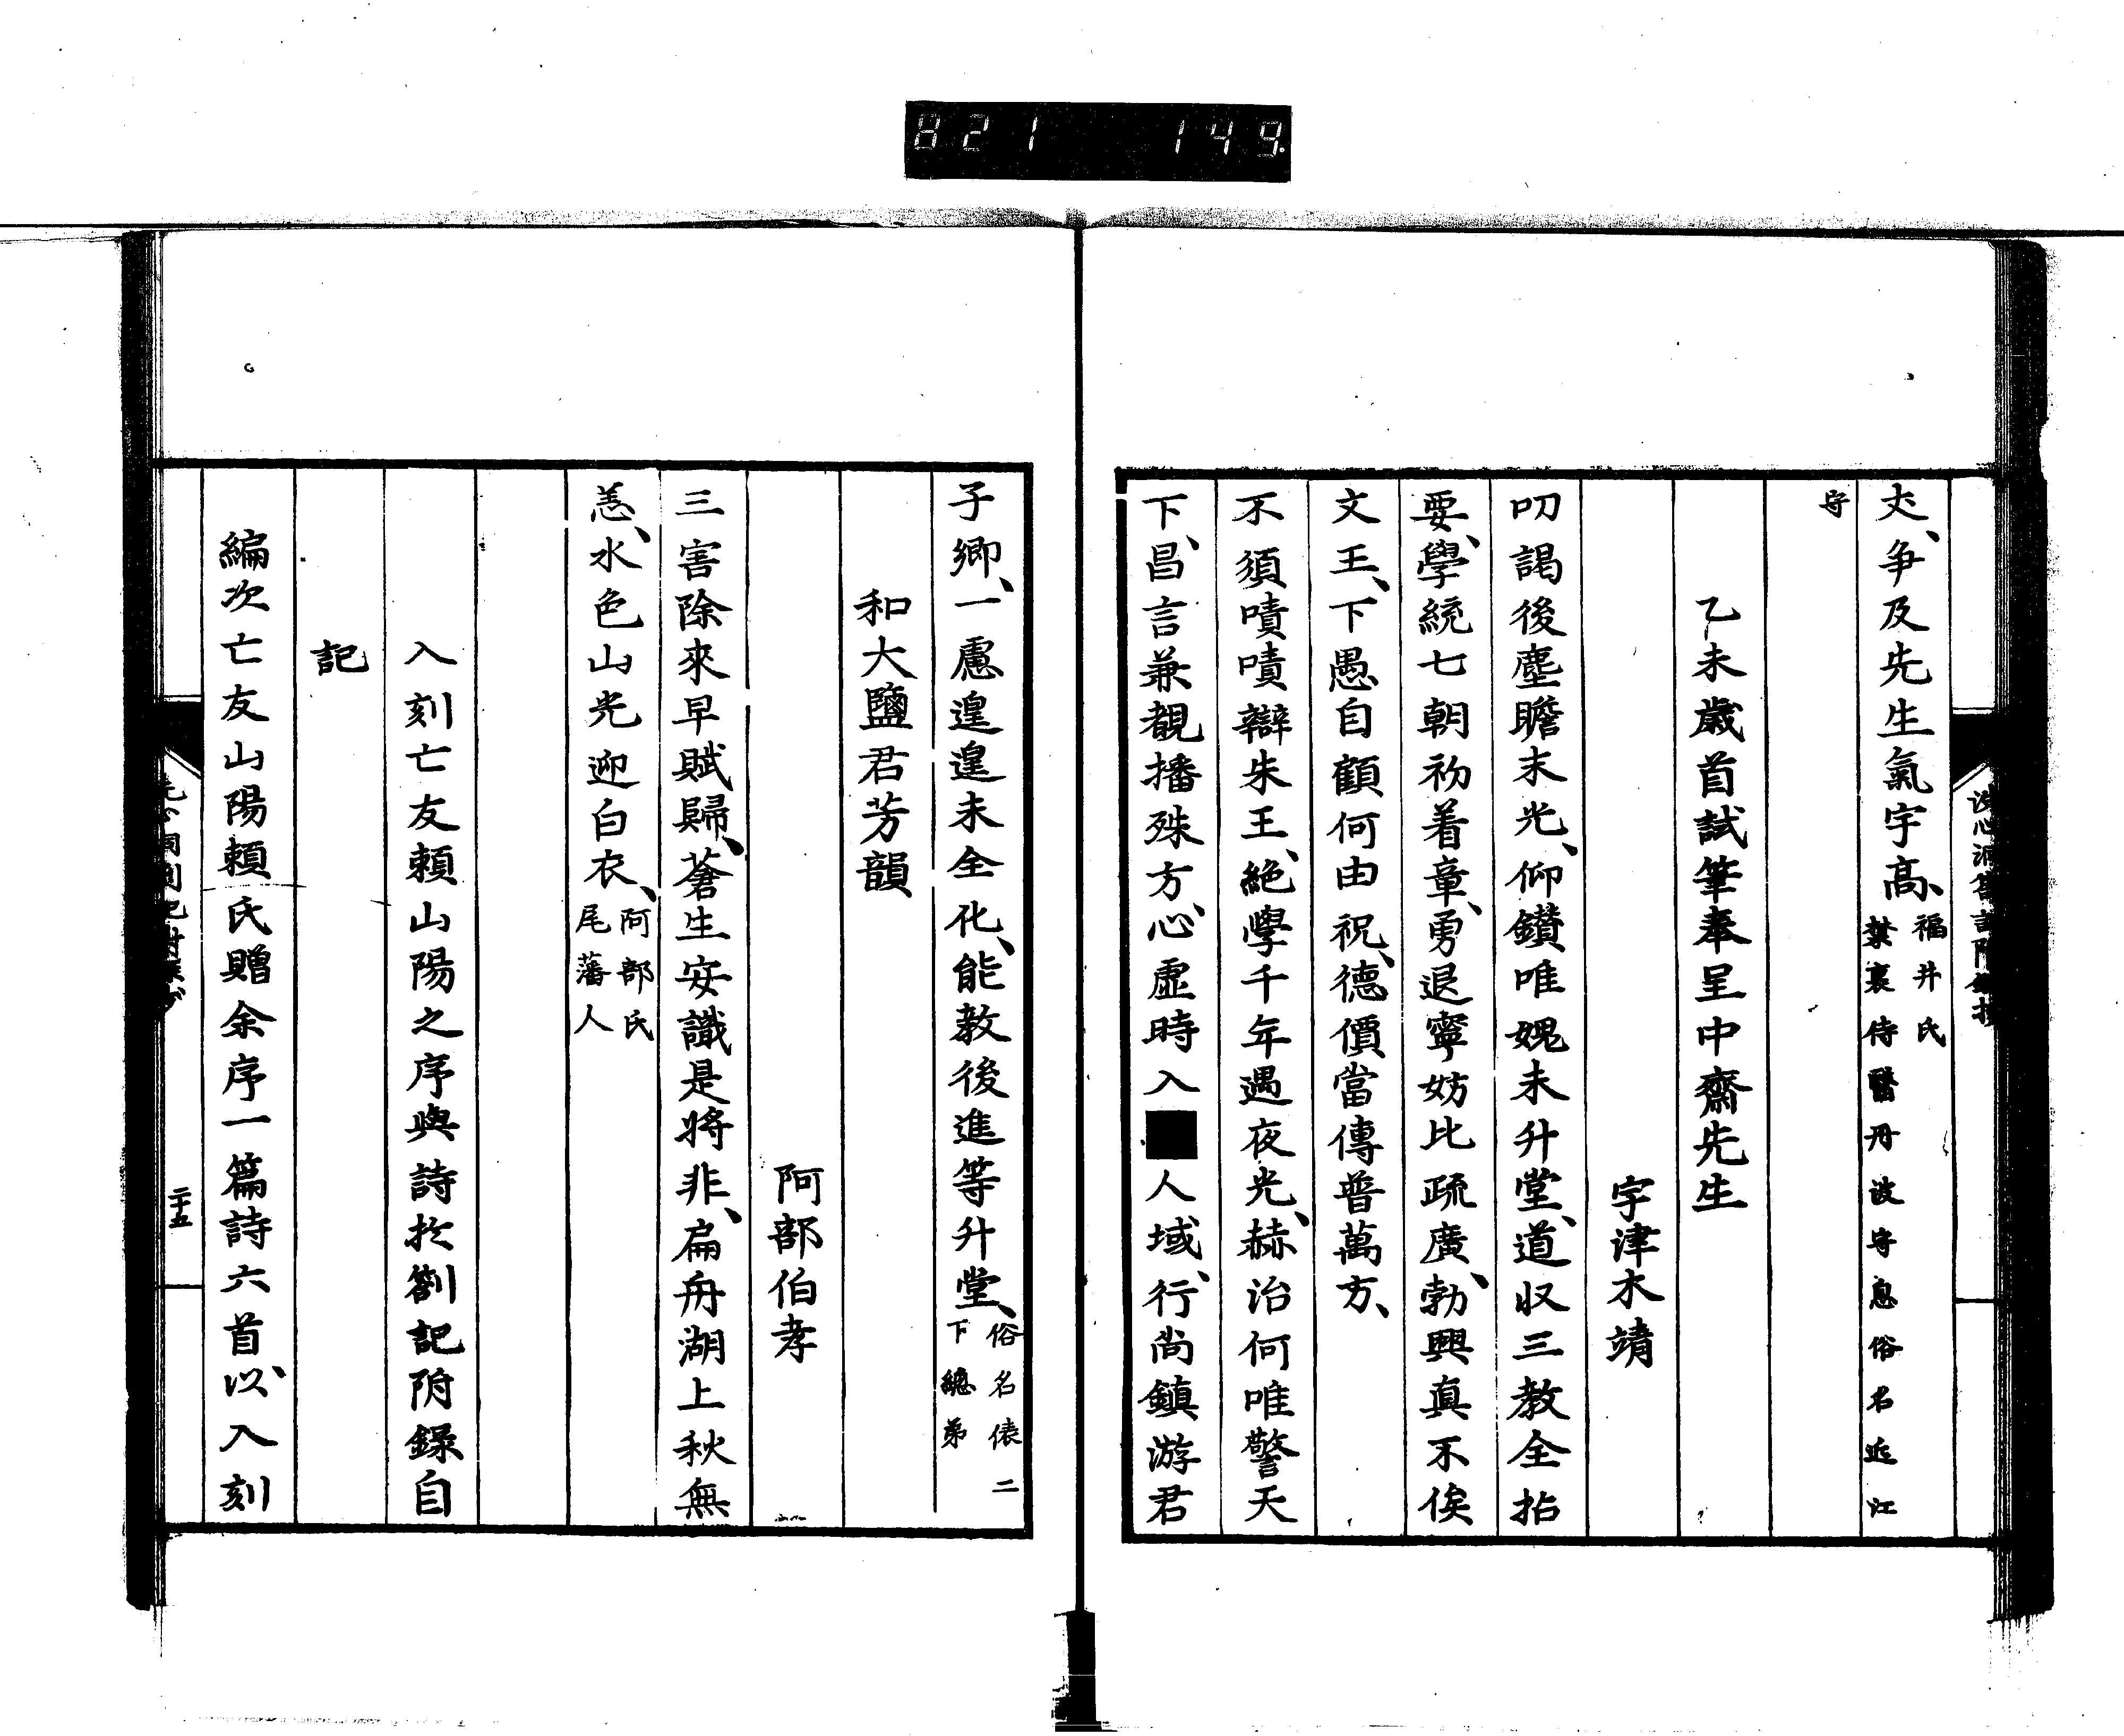 821 149
丈、争及先生氣宇高、福井氏
禁裏侍醫丹波守息俗名近江
守
乙未歳首試筆奉呈中齋先生
宇津木靖
叨謁後塵瞻末光、仰鑚唯媿未升堂、道収三教全拈
要、學統七朝初着章、勇退寧妨比疏廣、勃興真不俟
文王、下愚自顧何由祝、德價當傳普萬方、
不須嘖嘖辯朱王、絕學千年遇夜光、赫治何唯警天
下、昌言兼覩播殊方、心虛時入■人域、行尚鎮游君
子卿、一慮遑遑未全化、能教後進等升堂、俗名俵二
下總弟
和大鹽君芳韻
阿部伯孝
三害除來早賦歸、蒼生安識是將非、扁舟湖上秋無
恙、水色山光迎白衣、阿部氏
尾藩人
入刻亡友賴山陽之序與詩於劄記附錄自
記
編次亡友山陽賴氏贈余序一篇詩六首、以入刻
二十五